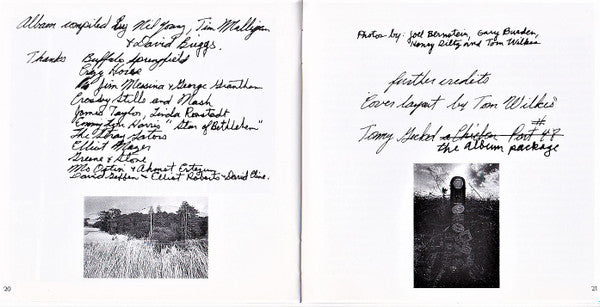 Album compiled By Neil Young, Tim Mulligan
& David Briggs.
Thanks Buffalo Springfield
Crazy Horse
Jim Messina & George Grantham
Crosby Stills and Nash
James Taylor, Linda Ronstadt
Emmylou Harris "Star of Bethlehem"
The Stray Gators
Elliot Mazer
Greene & Stone
Mo Ostin & Ahmet Ertegun
David Geffen & Elliot Roberts & David Cline.
20
Photos by: Joel Bernstein, Gary Burden,
Henry Diltz and Tom Wilkes
further credits
"Cover layout by Tom Wilkes"
Tommy
#
a Chicken Part 48
the album package
21